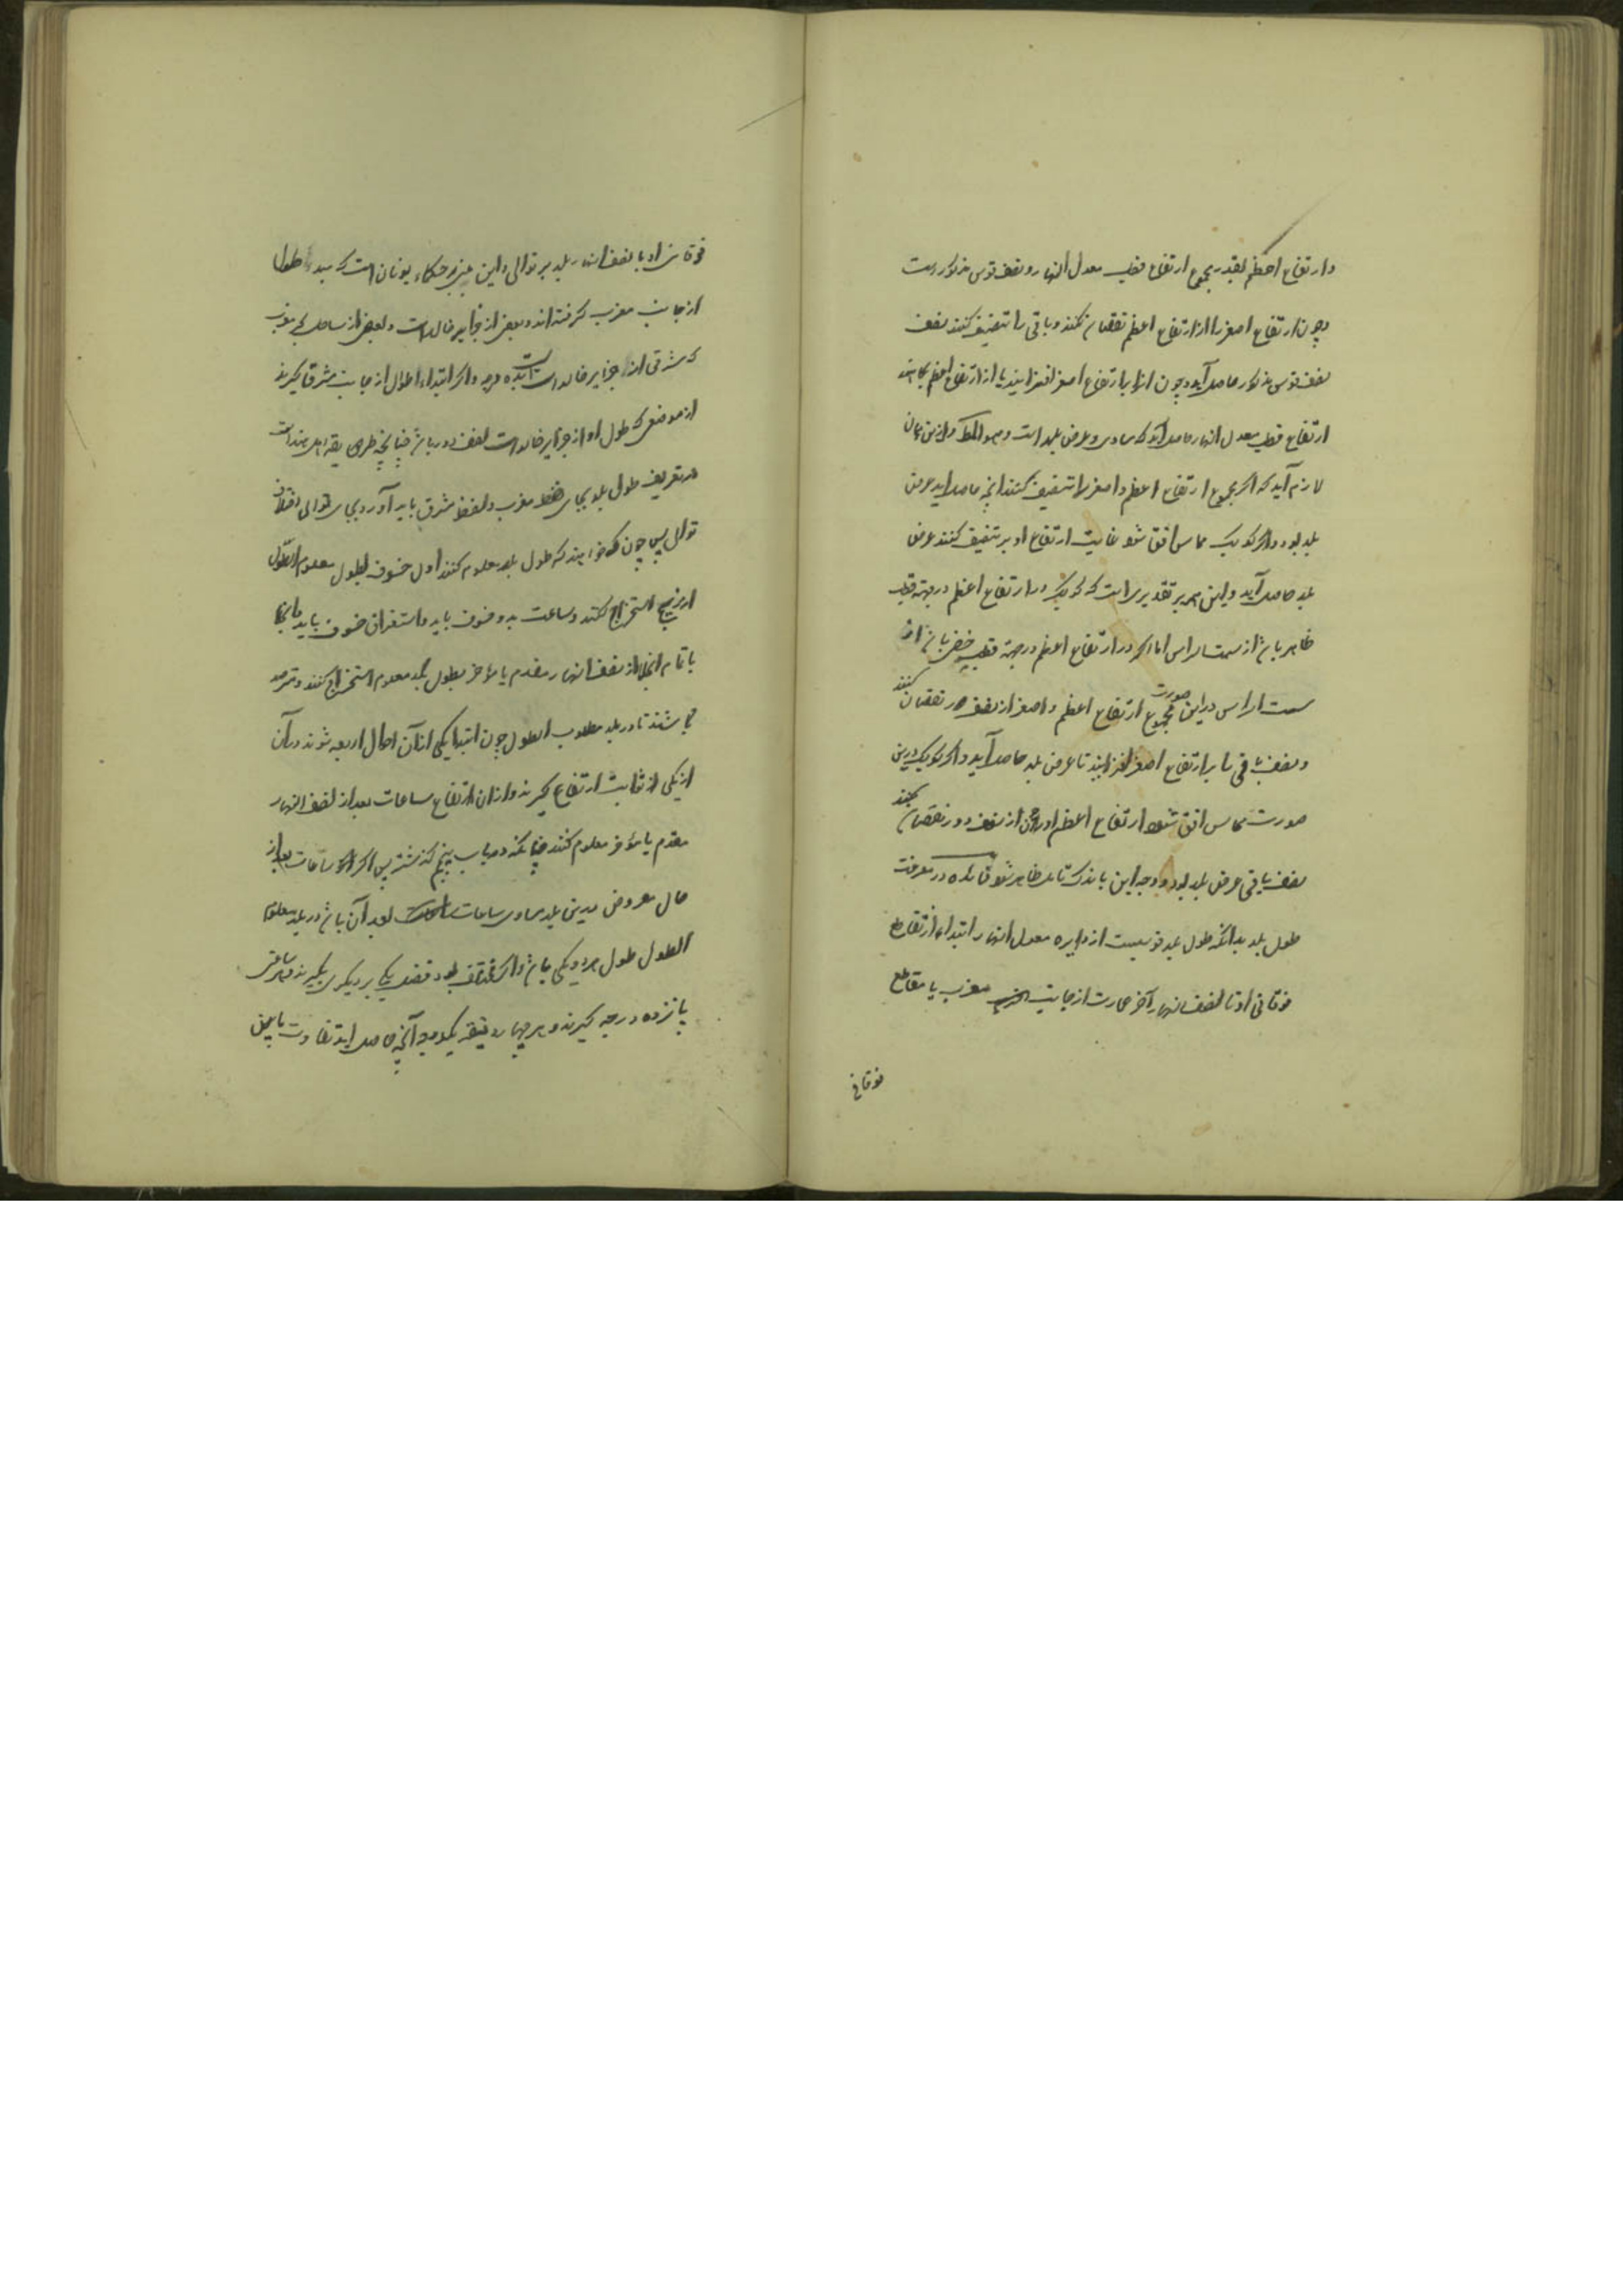 وارتفاع اعظم بقدر مجموع ارتفاع قطب معدل النهار و نصف قوس مذکورست
وچون ارتفاع اصغر را از ارتفاع اعظم نقصان کنند و باقی را تنصیف کنند نصف
نصف قوس مذکور حاصل آید و چون آنرا بر ارتفاع اصغر افزایند یا از ارتفاع اعظم بکاهند
ارتفاع قطب معدل النهار حاصل آید که مساوی عرض بلد است و هو المط و ازین بیان
لازم آید که اگر مجموع ارتفاع اعظم و اصغر را تنصیف کنند آنچه حاصل آید عرض
بلد بود و اگر کوکب مماس افق شود غایت ارتفاع او بر تنصیف کنند عرض
بلد حاصل آید و این هم بر تقدیری است که کوکب در ارتفاع اعظم در جهة قطب
ظاهر باشد از سمت الراس اما اگر در ارتفاع اعظم درجهة قطب خفی باشد از
سمت الراس درین صورت مجموع ارتفاع اعظم و اصغر از نصف دور نقصان کنند
و نصف باقی را بر ارتفاع اصغر افزایند تا عرض بلد حاصل آید و اگر کوکب درین
صورت مماس افق شود ارتفاع اعظم او را از نصف دور نقصان کنند
نصف باقی عرض بلد بود و وجه این باندک تامل ظاهر شود فائده در معرفت
طول بلد بدانکه طول بلد قوسیست از دایره معدل النهار ابتداء از تقاطع
فوقانی او تا نصف النهار آخر عمارت از جانب مغرب یا مقاطع
فوقانی
فوقانی او با نصف النهار بلد بر توالی و این نزد حکماء یونان است که مبدء طول
از جانب مغرب گرفته اند و بعضی از جزایر خالدات و بعضی از ساحل بحر مغرب
که شرقی از جزایر خالدات است بده درجه و اگر ابتداء اطوال از جانب مشرق گیرند
از موضعی که طول او از جزایر خالدات نصف دور باشد چنانچه طریقه اهل هند است
در تعریف طول بلد بجای لفظ مغرب لفظ مشرق باید آورد و بجای توالی خلاف
توالی پس چون خواهند که طول بلد معلوم کنند اول خسوف بطول معلوم الطول
از زیج استخراج کنند و ساعت بدو خسوف یا بدو استغراق خسوف یا بدو انجلا
یا تمام انجلا از نصف النهار مقدم یا مؤخر بطول بلد معلوم استخراج کنند و مترصد
می باشند تا در بلد مطلوب الطول چون ابتدا یکی از آن احوال اربعه شود در آن
از یکی از ثوابت ارتفاع گیرند و از ان ارتفاع ساعات بعد از نصف النهار
مقدم یا مؤخر معلوم کنند چنانکه در باب پنجم گذشت پس اگر ساعات بعد از
حال مفروض درین بلد مساوی ساعات بعد آن باشد در بلد معلوم
الطول طول هر دو یکی باشد و اگر مختلف بود فضل یکی بر دیگری بگیرند و هر ساعتی
پانزده درجه گیرند و هر چهار دقیقه یکدرجه آنچه حاصل آید تفاوت ما بین